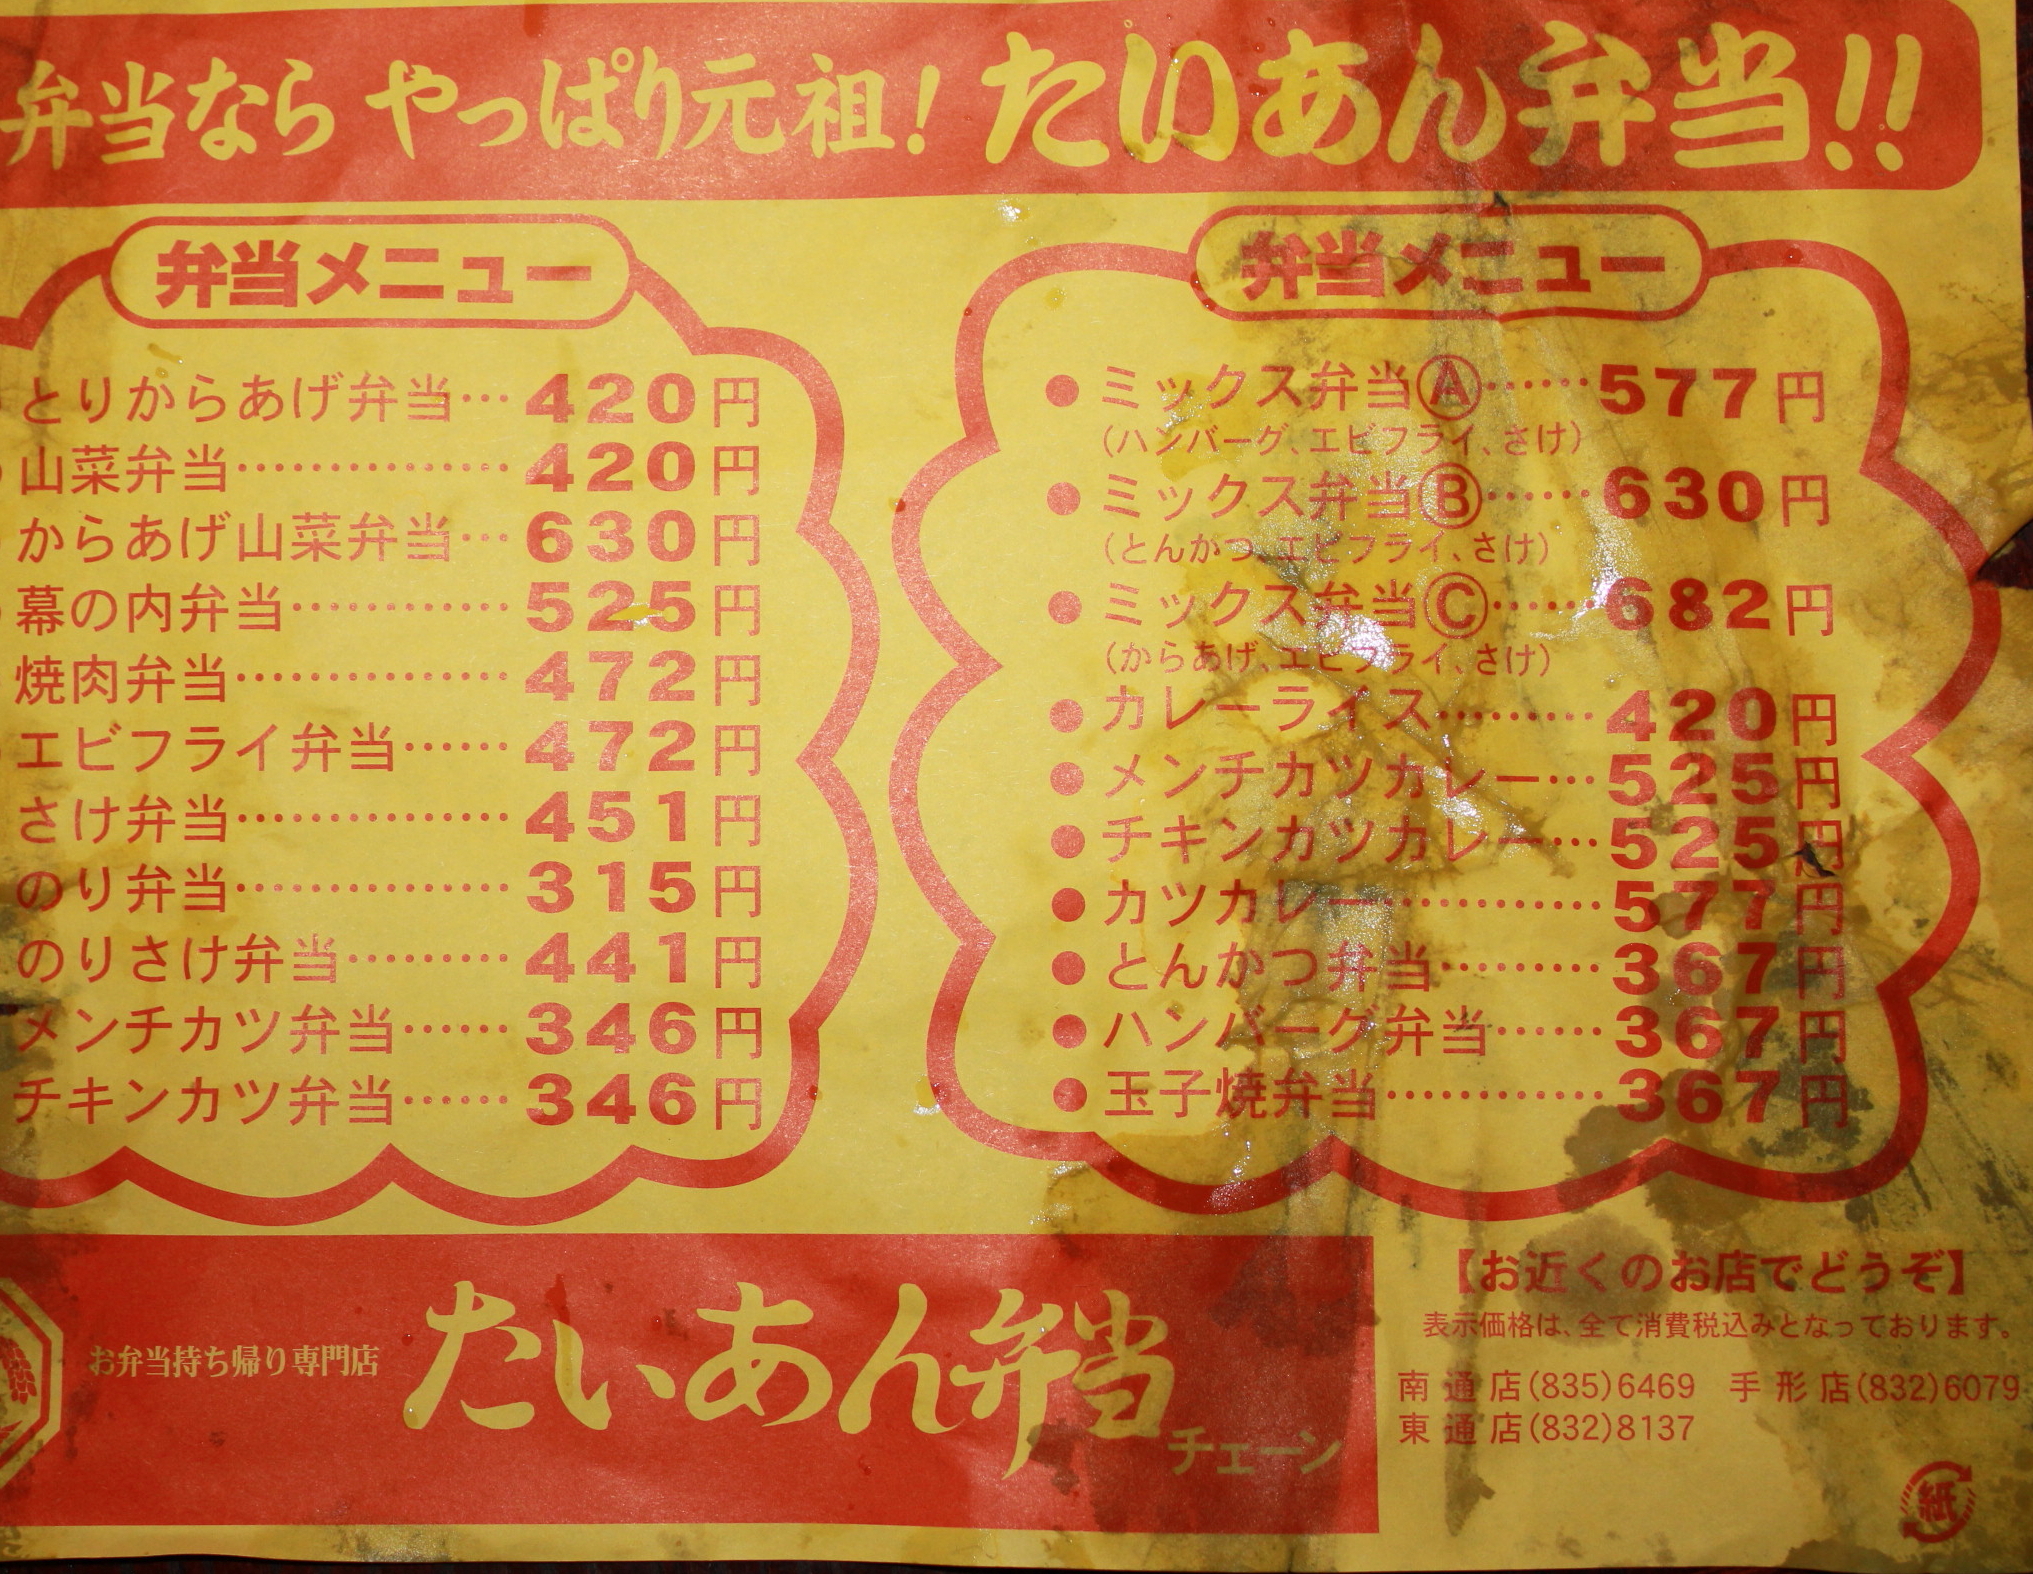 弁当なら やっぱり元祖! たいあん弁当!!
弁当メニュー
とりからあげ弁当…420円
山菜弁当……………420円
からあげ山菜弁当…630円
幕の内弁当…………525円
焼肉弁当……………472円
エビフライ弁当……472円
さけ弁当……………451円
のり弁当……………315円
のりさけ弁当………441円
メンチカツ弁当……346円
チキンカツ弁当……346円
弁当メニュー
●ミックス弁当Ⓐ……577円
(ハンバーグ、エビフライ、さけ)
●ミックス弁当Ⓑ……630円
(とんかつ、エビフライ、さけ)
●ミックス弁当Ⓒ……682円
(からあげ、エビフライ、さけ)
●カレーライス………420円
●メンチカツカレー…525円
●チキンカツカレー…525円
●カツカレー…………577円
●とんかつ弁当………367円
●ハンバーグ弁当……367円
●玉子焼弁当…………367円
お弁当持ち帰り専門店
たいあん弁当
チェーン
【お近くのお店でどうぞ】
表示価格は、全て消費税込みとなっております。
南通店(835)6469 手形店(832)6079
東通店(832)8137
紙